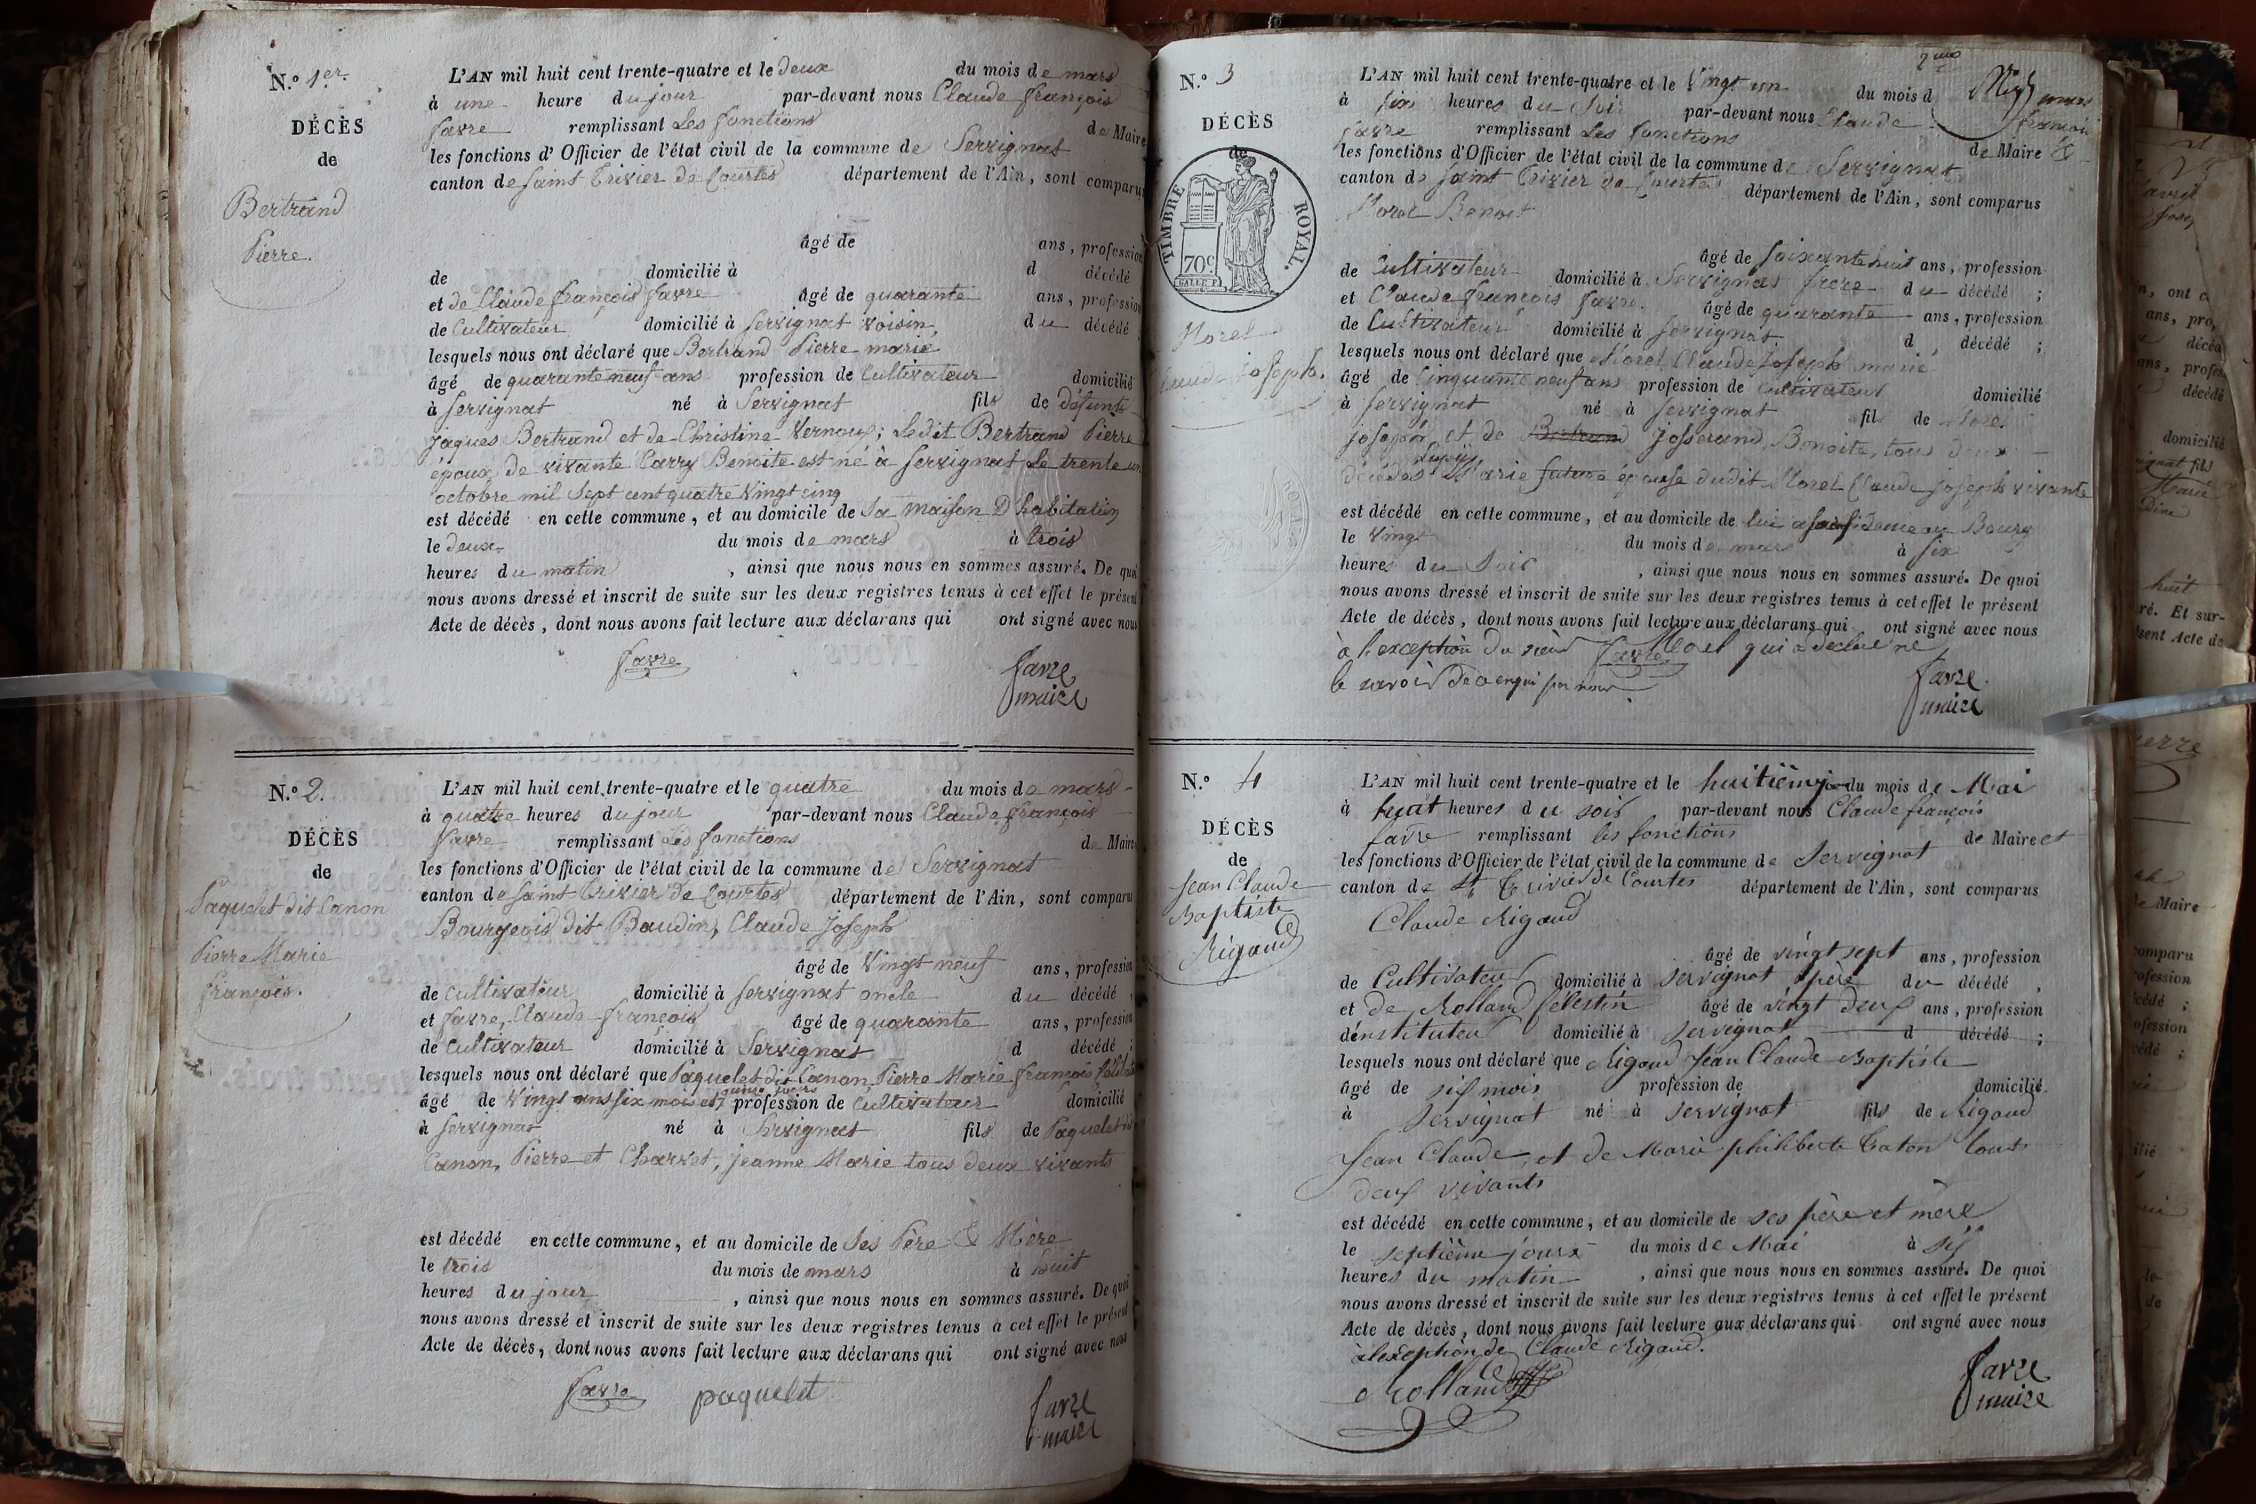 N.º 1er.
DÉCÈS
de
Bertrand
Pierre.
L'AN mil huit cent trente-quatre et le deux du mois de mars
à une heure du jour par-devant nous Claude françois
favre remplissant Les fonctions de Maire
les fonctions d'Officier de l'état civil de la commune de Servignat
canton de Saint Trivier de Courtes département de l'Ain, sont comparus
âgé de ans, profession
de domicilié à d décédé
et de Claude françois favre âgé de quarante ans, profession
de Cultivateur domicilié à Servignat voisin du décédé
lesquels nous ont déclaré que Bertrand Pierre marié
âgé de quarante neuf ans profession de Cultivateur domicilié
à Servignat né à Servignat fils de défunts
Jaques Bertrand et de Christine Vernoux; Ledit Bertrand Pierre
époux de vivante Carry Benoite est né à Servignat Le trente un
octobre mil Sept cent quatre Vingt cinq
est décédé en cette commune, et au domicile de Sa maison D'habitation
le deux du mois de mars à trois
heures du matin, ainsi que nous nous en sommes assuré. De quoi
nous avons dressé et inscrit de suite sur les deux registres tenus à cet effet le présent
Acte de décès, dont nous avons fait lecture aux déclarans qui ont signé avec nous
favre favre
maire
N.º 2.
DÉCÈS
de
Paquelet dit Canon
Pierre Marie
françois.
L'AN mil huit cent trente-quatre et le quatre du mois de mars
à quatre heures du jour par-devant nous Claude françois
favre remplissant Les fonctions de Maire
les fonctions d'Officier de l'état civil de la commune de Servignat
canton de Saint Trivier de Courtes département de l'Ain, sont comparu
Bourgeois dit Baudin, Claude Joseph
âgé de Vingt neuf ans, profession
de Cultivateur domicilié à Servignat oncle du décédé
et favre, Claude françois âgé de quarante ans, profession
de Cultivateur domicilié à Servignat d décédé ;
lesquels nous ont déclaré que Paquelet dit Canon Pierre Marie françois
âgé de Vingt ans six mois et quinze jours profession de Cultivateur domicilié
à Servignat né à Servignat fils de Paquelet dit
Canon, Pierre et Charvet, Jeanne Marie tous deux vivants
est décédé en cette commune, et au domicile de Ses Père & Mère
le trois du mois de mars à huit
heures du jour, ainsi que nous nous en sommes assuré. De quoi
nous avons dressé et inscrit de suite sur les deux registres tenus à cet effet le présent
Acte de décès, dont nous avons fait lecture aux déclarans qui ont signé avec nous
favre paquelet favre
maire
N.º 3
DÉCÈS
de
TIMBRE ROYAL.
70c
Morel
Claude Joseph.
L'AN mil huit cent trente-quatre et le Vingt un du mois d mars
à six heures du Soir par-devant nous Claude françois
favre remplissant Les fonctions de Maire &
les fonctions d'Officier de l'état civil de la commune de Servignat
canton de Saint Trivier de Courtes département de l'Ain, sont comparus
Morel Benoit
âgé de Soixante huit ans, profession
de Cultivateur domicilié à Servignat frere du décédé ;
et Claude françois favre âgé de quarante ans, profession
de Cultivateur domicilié à Servignat d décédé ;
lesquels nous ont déclaré que Morel Claude Joseph marié
âgé de Cinquante neuf ans profession de Cultivateur domicilié
à Servignat né à Servignat fils de Morel
Joseph et de Bertrand Josserand, Benoite, tous deux
décédés Marie future épouse dudit Morel Claude Joseph vivante
est décédé en cette commune, et au domicile de lui au Bourg
le Vingt du mois de mars à six
heures du Soir, ainsi que nous nous en sommes assuré. De quoi
nous avons dressé et inscrit de suite sur les deux registres tenus à cet effet le présent
Acte de décès, dont nous avons fait lecture aux déclarans qui ont signé avec nous
à l'exception du sieur Morel qui a déclaré ne
le savoir de ce enquis par nous
favre favre
maire
N.º 4
DÉCÈS
de
Jean Claude
Baptiste
Rigaud
L'AN mil huit cent trente-quatre et le huitième du mois de Mai
à huit heures du soir par-devant nous Claude françois
favre remplissant les fonctions de Maire et
les fonctions d'Officier de l'état civil de la commune de Servignat
canton de St Trivier de Courtes département de l'Ain, sont comparus
Claude Rigaud
âgé de vingt sept ans, profession
de Cultivateur domicilié à Servignat père du décédé
et de Rolland Celestin âgé de vingt deux ans, profession
dénstituteur domicilié à Servignat d décédé ;
lesquels nous ont déclaré que Rigaud Jean Claude Baptiste
âgé de six mois profession de domicilié
à Servignat né à Servignat fils de Rigaud
Jean Claude, et de Marie philiberte Caton tout
deux vivants
est décédé en cette commune, et au domicile de ses père et mère
le septième jour du mois de Mai à six
heures du matin, ainsi que nous nous en sommes assuré. De quoi
nous avons dressé et inscrit de suite sur les deux registres tenus à cet effet le présent
Acte de décès, dont nous avons fait lecture aux déclarans qui ont signé avec nous
à l'exception de Claude Rigaud.
Rolland favre
maire